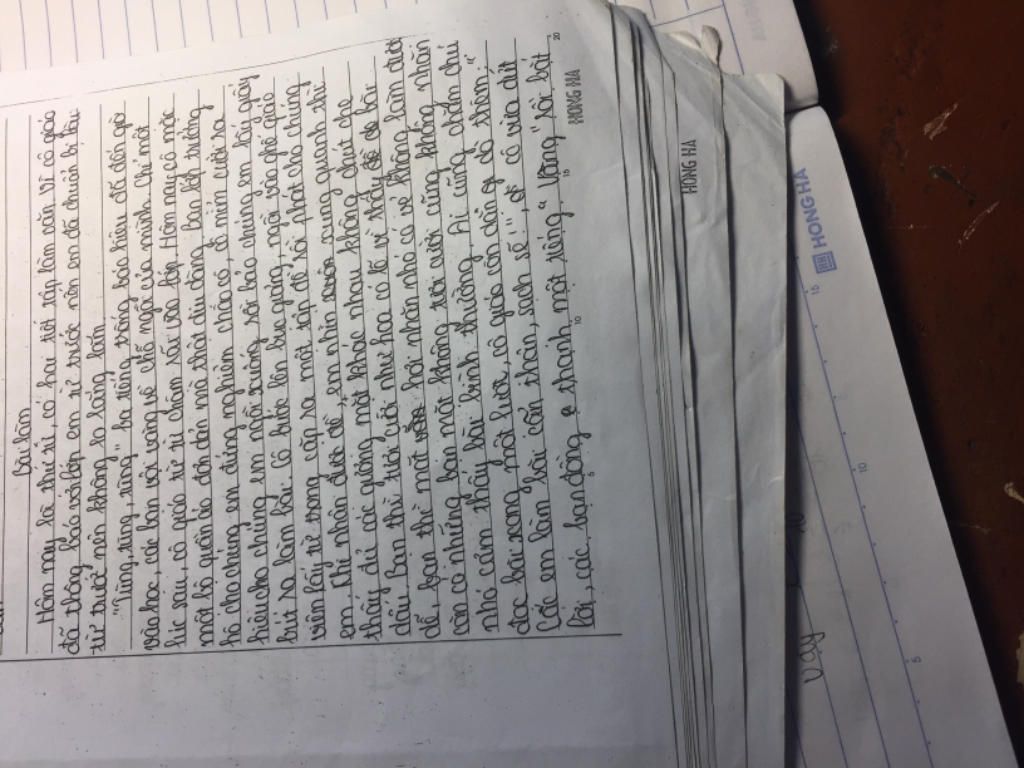 Bài làm
Hôm nay là thứ tư, có hai tiết tập làm văn. Vì cô giáo
đã thông báo với lớp em từ trước nên em đã chuẩn bị bài
từ trước nên không lo lắng lắm.
"Tùng, tùng, tùng" ba tiếng trống báo hiệu đã đến giờ
vào học, các bạn vội vàng về chỗ ngồi của mình. Chỉ một
lúc sau, cô giáo từ từ chậm rãi vào lớp. Hôm nay cô mặc
một bộ quần áo đơn giản mà thật dịu dàng. Bạn lớp trưởng
hô cho chúng em đứng nghiêm chào cô, cô mỉm cười ra
hiệu cho chúng em ngồi xuống rồi bảo chúng em lấy giấy
bút ra làm bài. Cô bước lên bục giảng, ngồi vào ghế giáo
viên lấy từ trong cặp ra một tập đề rồi phát cho chúng
em. Khi nhận được đề, em nhìn xung quanh thì
thấy đủ các giọng mặt khác nhau không chút che
dấu. Bạn thì tươi cười như hoa có lẽ vì thấy đề bài
dễ, bạn thì mặt hơi nhăn nhó có vẻ không làm được
còn có những bạn mặt không tươi cười cũng không nhăn
nhó cảm thấy bài bình thường. Ai cũng chăm chú
đọc bài xong một lượt, cô giáo còn dặn dò thêm: "
Các em làm bài cẩn thận, sạch sẽ", cô vừa dứt
lời, các bạn đồng thanh một tiếng "Vâng" rồi bắt
5
10
15
20
HONG HA
HONG HA
HONG HA
5
10
15
vậy